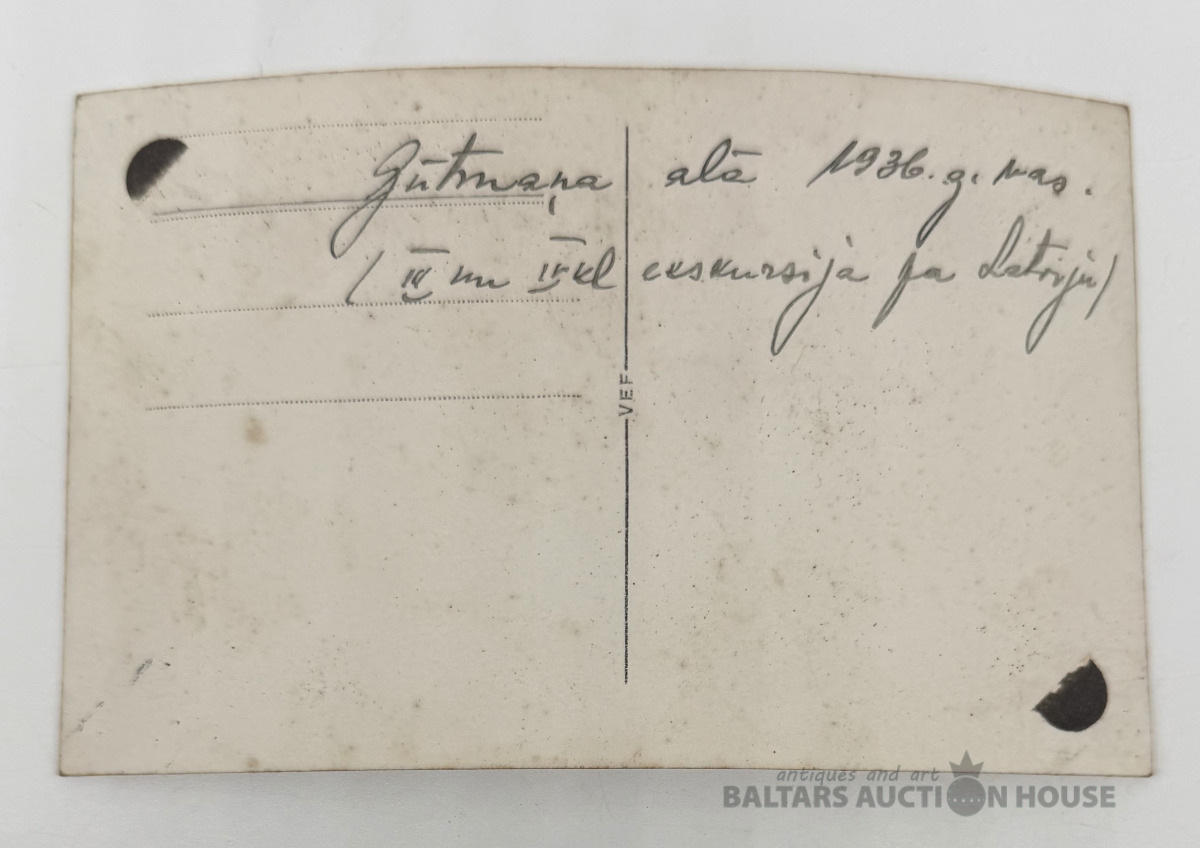 Gūtmaņa alā 1936. g. vas.
(III un IV kl ekskursija pa Latviju)
VEF
antiques and art
BALTARS AUCTION HOUSE